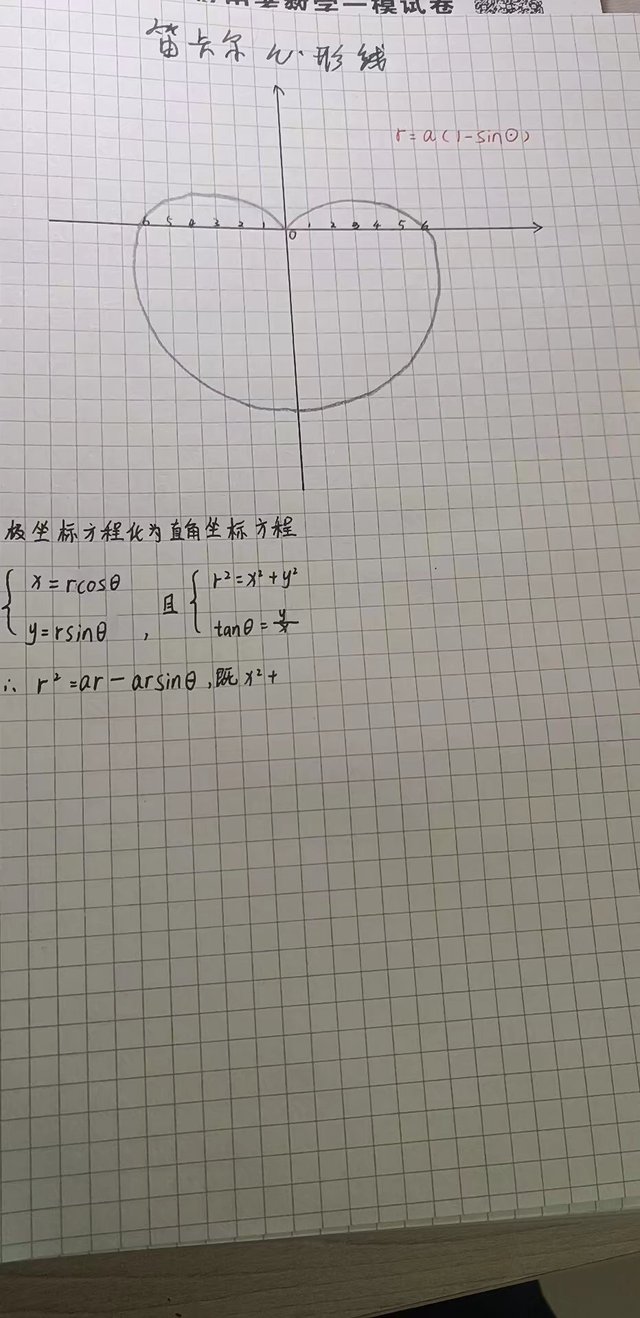 学一模试卷
笛卡尔心形线
r=a(1-sinΘ)
6 5 4 3 2 1 0 1 2 3 4 5 6
极坐标方程化为直角坐标方程
{ x=rcosθ 且 { r²=x²+y²
y=rsinθ , tanθ=y/x
∴ r²=ar-arsinθ,既x²+